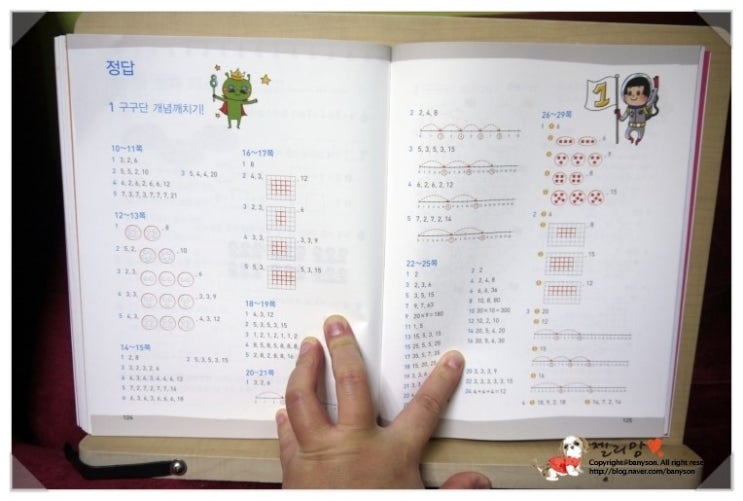 정답
1 구구단 개념깨치기!
10~11쪽
1 3, 2, 6
2 5, 5, 2, 10
3 5, 4, 4, 20
4 6, 2, 6, 2, 6, 6, 12
5 7, 3, 7, 3, 7, 7, 7, 21
12~13쪽
1 , 8
2 5, 2, , 10
3 2, 3, , 6
4 3, 3, , 3, 3, 9
5 4, 3, , 4, 3, 12
14~15쪽
1 2, 8
2 5, 3, 5, 3, 15
3 3, 2, 3, 2, 6
4 6, 3, 6, 3, 6, 6, 6, 12
5 7, 2, 7, 2, 7, 7, 14
6 6, 3, 6, 3, 6, 6, 6, 18
124
16~17쪽
1 8
2 4, 3, , 12
3 2, 3, , 6
4 3, 3, , 3, 3, 9
5 5, 3, , 5, 3, 15
18~19쪽
1 4, 3, 12
2 5, 3, 5, 3, 15
3 1, 2, 1, 2, 1, 1, 2
4 8, 5, 8, 5, 8, 8, 8,
5 2, 8, 2, 8, 8, 16
20~21쪽
1 3, 2, 6
2 2, 4, 8
3 5, 3, 5, 3, 15
4 6, 2, 6, 2, 12
5 7, 2, 7, 2, 14
22~25쪽
1 2
2 2
3 2, 3, 6
4 2, 4, 8
5 3, 5, 15
6 6, 6, 36
7 9, 7, 63
8 10, 8, 80
9 20×9=180
10 30×10=300
11 1, 5
12 10, 2, 10
13 15, 5, 3, 15
14 20, 5, 4, 20
15 25, 5, 5, 25
16 30, 5, 6, 30
17 35, 5, 7, 35
20 3, 3, 3, 9
22 3, 3, 3, 3, 3, 15
24 4+4+4=12
26~29쪽
1 6
, 6
, 9
, 8
, 15
2 6
, 8
, 15
, 12
3 20
12
15
16
4 18, 9, 2, 18
14, 7, 2, 14
125
1
젤리맘
Copyright@banyson. All right rese
http://blog.naver.com/banyson